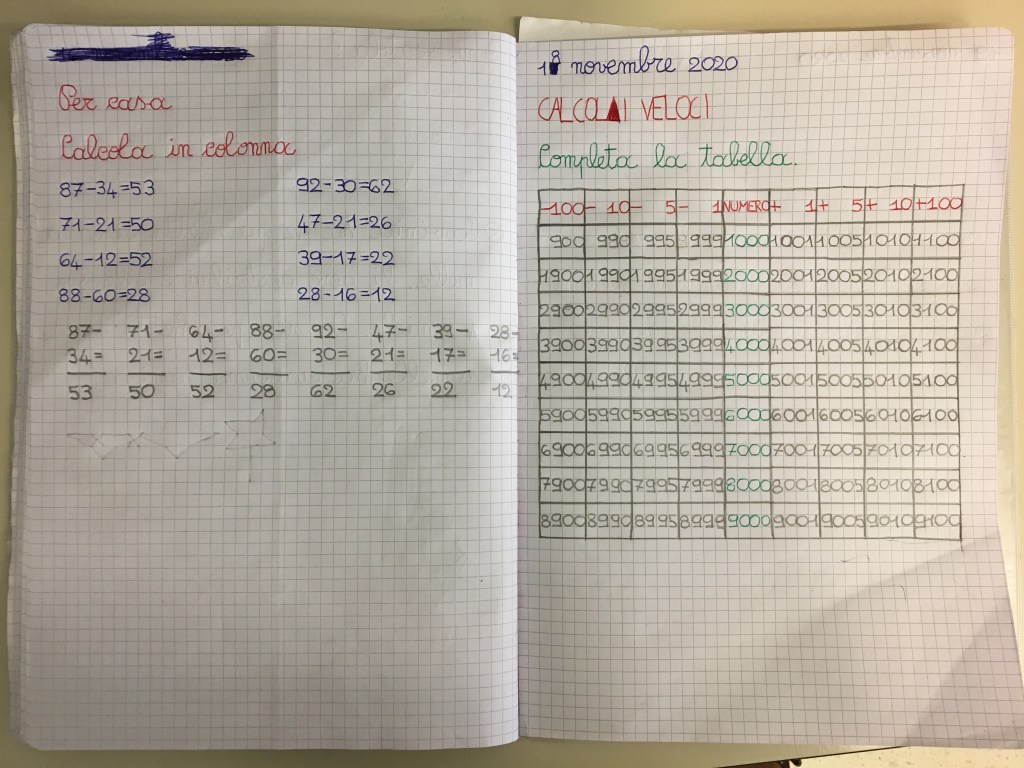 Per casa
Calcola in colonna
87-34=53 92-30=62
71-21=50 47-21=26
64-12=52 39-17=22
88-60=28 28-16=12
87- 71- 64- 88- 92- 47- 39- 28-
34= 21= 12= 60= 30= 21= 17= 16=
53 50 52 28 62 26 22 12
18 novembre 2020
CALCOLI VELOCI
Completa la tabella.
-100 - 10 - 5 - 1 NUMERO + 1 + 5 + 10 +100
900 990 995 999 1000 1001 1005 1010 1100
1900 1990 1995 1999 2000 2001 2005 2010 2100
2900 2990 2995 2999 3000 3001 3005 3010 3100
3900 3990 3995 3999 4000 4001 4005 4010 4100
4900 4990 4995 4999 5000 5001 5005 5010 5100
5900 5990 5995 5999 6000 6001 6005 6010 6100
6900 6990 6995 6999 7000 7001 7005 7010 7100
7900 7990 7995 7999 8000 8001 8005 8010 8100
8900 8990 8995 8999 9000 9001 9005 9010 9100